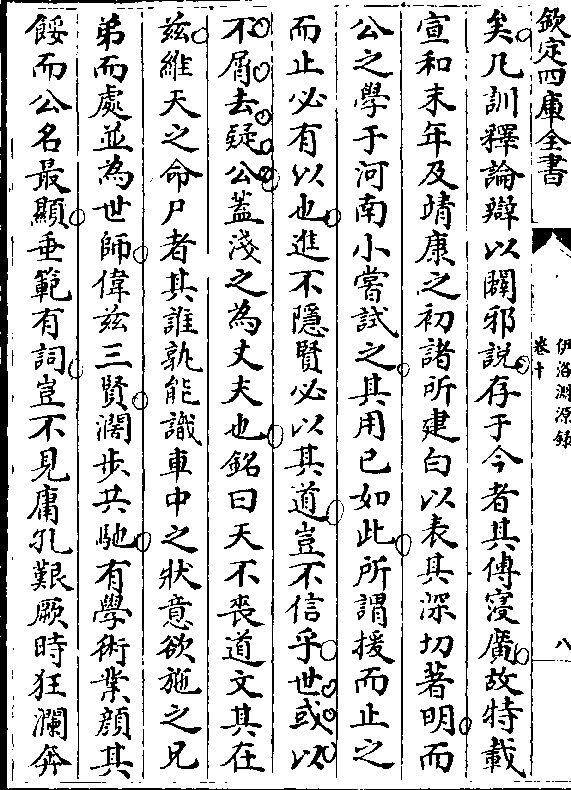 欽定四庫全書
伊洛淵源錄
卷十
八
矣凡訓釋論辯以闢邪說存于今者其傳寖廣故特載
宣和末年及靖康之初諸所建白以表其深切著明而
公之學于河南小嘗試之其用已如此所謂援而止之
而止必有以也進不隱賢必以其道豈不信乎世或以
不屑去疑公蓋淺之為丈夫也銘曰天不喪道文其在
兹維天之命尸者其誰孰能識車中之狀意欲施之兄
弟而處並為世師偉兹三賢濶步共馳有學術業顔其
餒而公名最顯垂範有詞豈不見庸孔艱厥時狂瀾奔